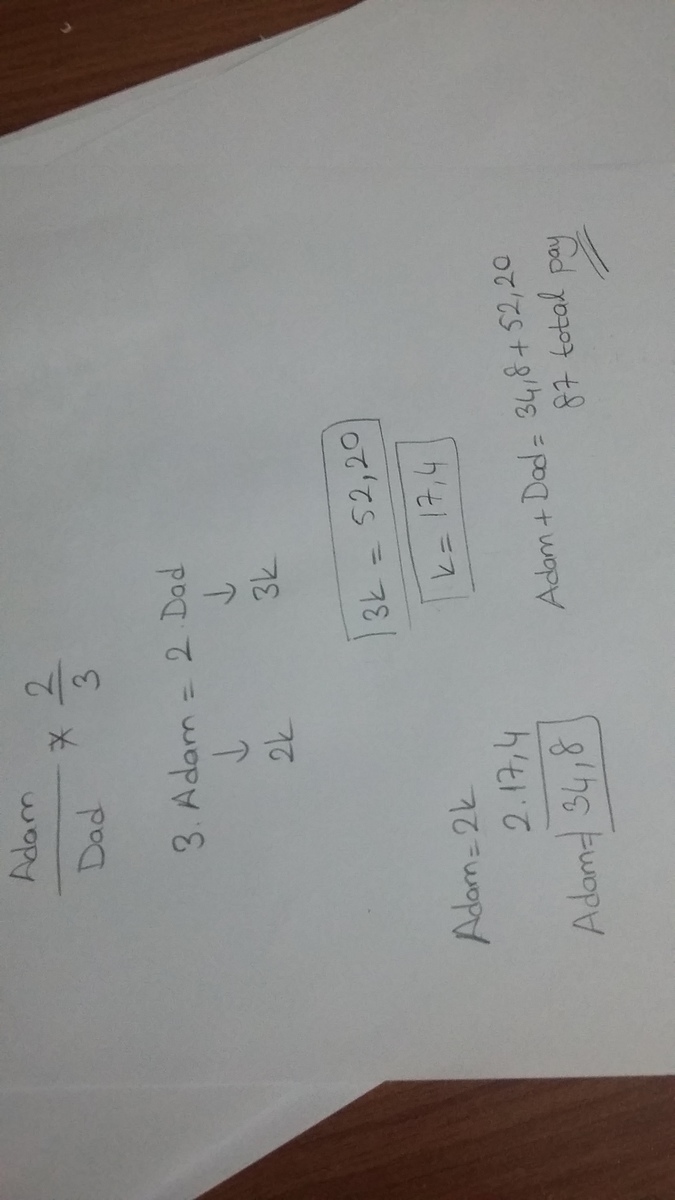 Adam
Dad
* 2/3
3. Adam = 2. Dad
↓ ↓
2k 3k
3k = 52,20
k = 17,4
Adam = 2k
2.17,4
Adam = 34,8
Adam + Dad = 34,8 + 52,20
87 total pay